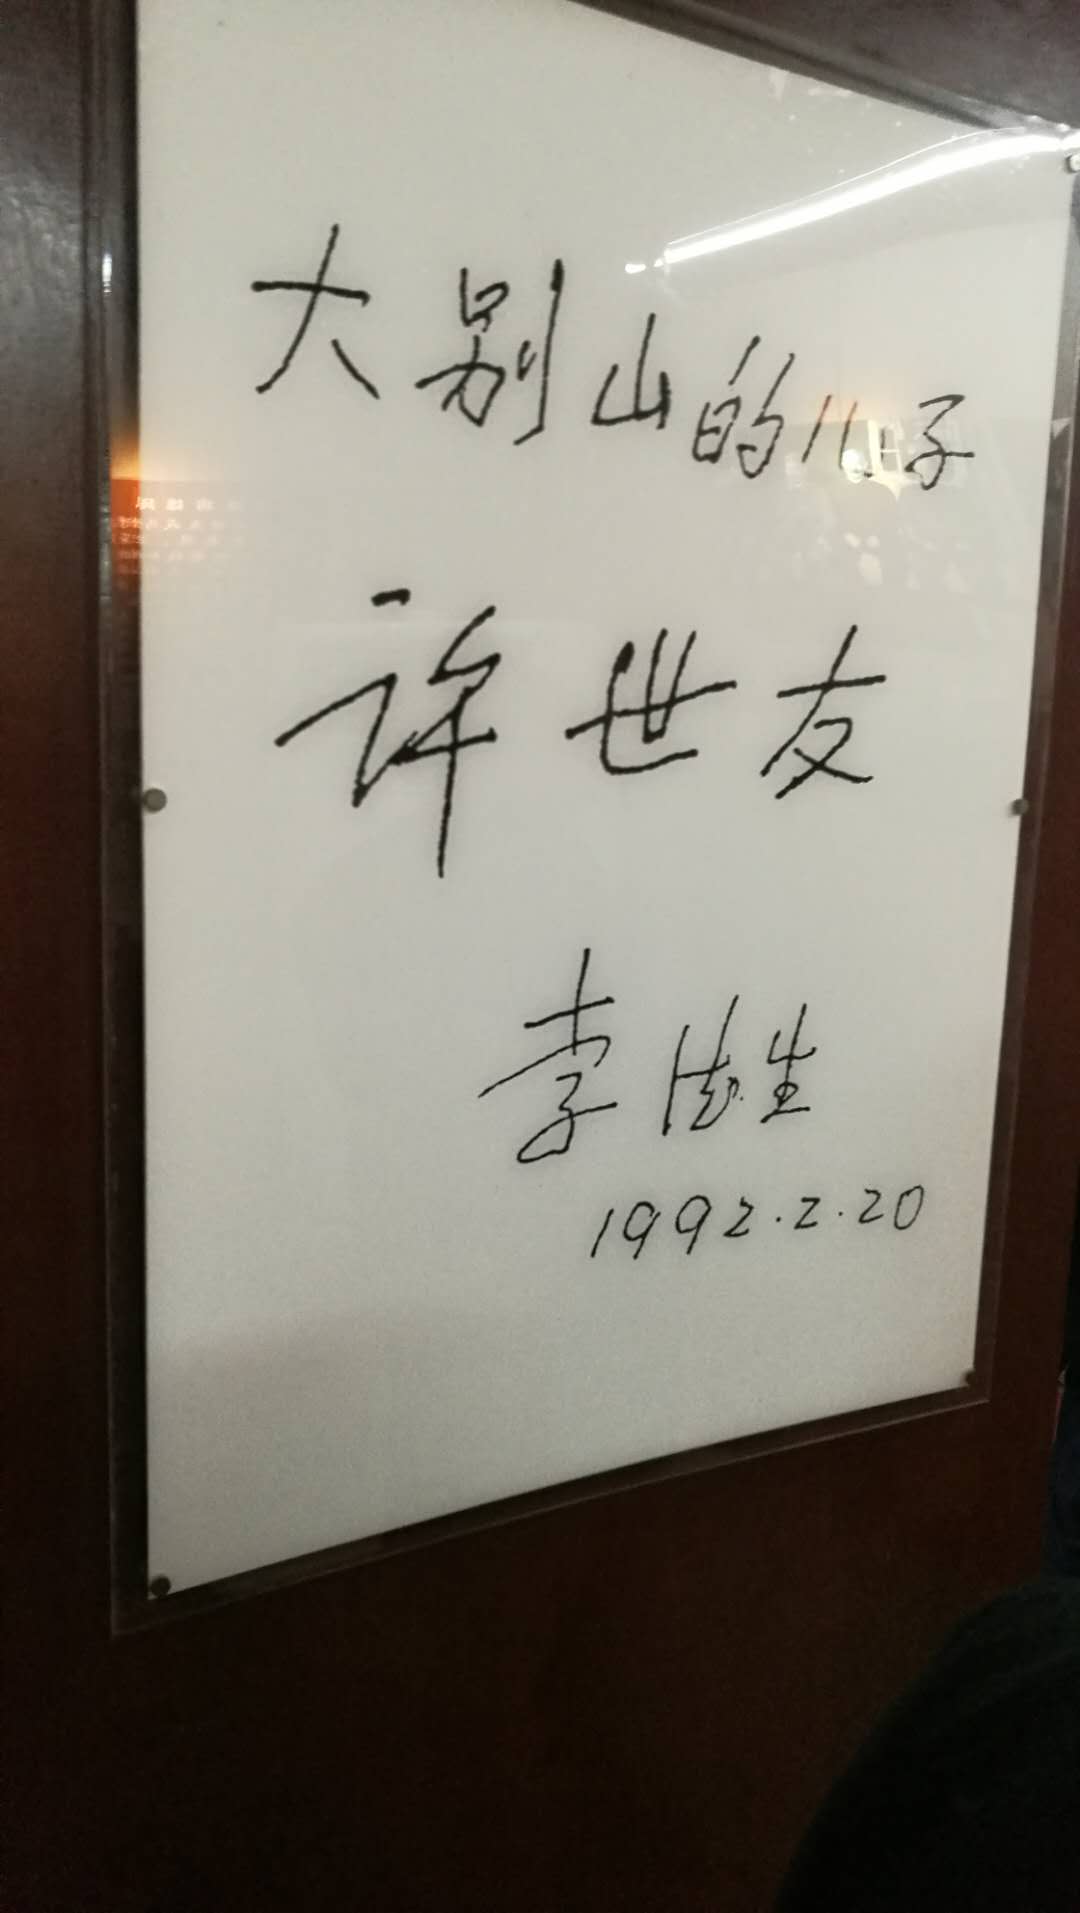 大别山的儿子
许世友
李德生
1992.2.20